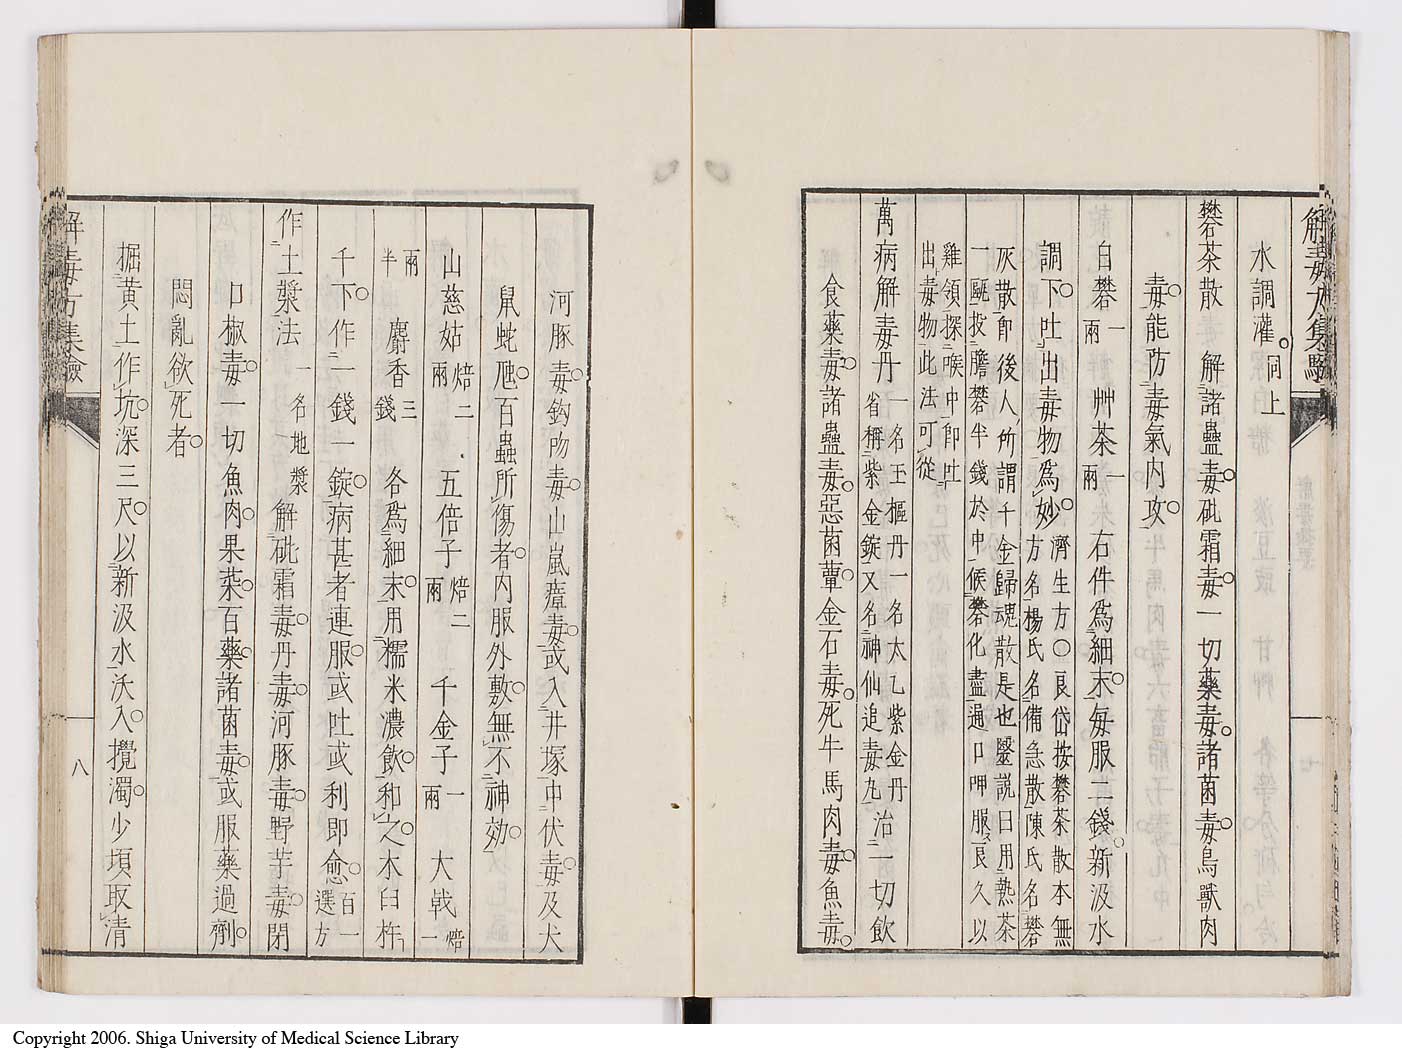 解毒方集驗
七
水調灌。同上
礬茶散 解諸蠱毒。砒霜毒。一切藥毒。諸菌毒。鳥獸肉
毒。能防毒氣内攻。
白礬一兩 艸茶一兩 右件爲細末。每服二錢。新汲水
調下。吐出毒物爲妙。濟生方〇艮岱按礬茶散本無
方名楊氏名備急散陳氏名礬
灰散即後人所謂千金歸魂散是也毉説曰用熱茶
一甌投膽礬半錢於中候礬化盡通口呷服良久以
雞領探喉中即吐
出毒物此法可從
萬病解毒丹 一名玉樞丹一名太乙紫金丹
省稱紫金錠又名神仙追毒丸 治一切飲
食藥毒。諸蠱毒。惡菌蕈。金石毒。死牛馬肉毒。魚毒。
河豚毒。鈎吻毒。山嵐瘴毒。或入井塚中伏毒。及犬
鼠蛇虺。百蟲所傷者。内服外敷。無不神効。
山慈姑焙二兩 五倍子焙二兩 千金子一兩 大戟焙一
兩半 麝香三錢 各爲細末。用糯米濃飲。和之。木臼杵
千下。作一錢一錠。病甚者連服。或吐或利即愈。百一選方
作土漿法 一名地漿 解砒霜毒。丹毒。河豚毒。野芋毒。閉
口椒毒。一切魚肉。果菜。百藥。諸菌毒。或服藥過劑。
悶亂欲死者。
掘黄土作坑。深三尺。以新汲水沃入。攪濁。少頃取清
解毒方集驗
八
Copyright 2006. Shiga University of Medical Science Library